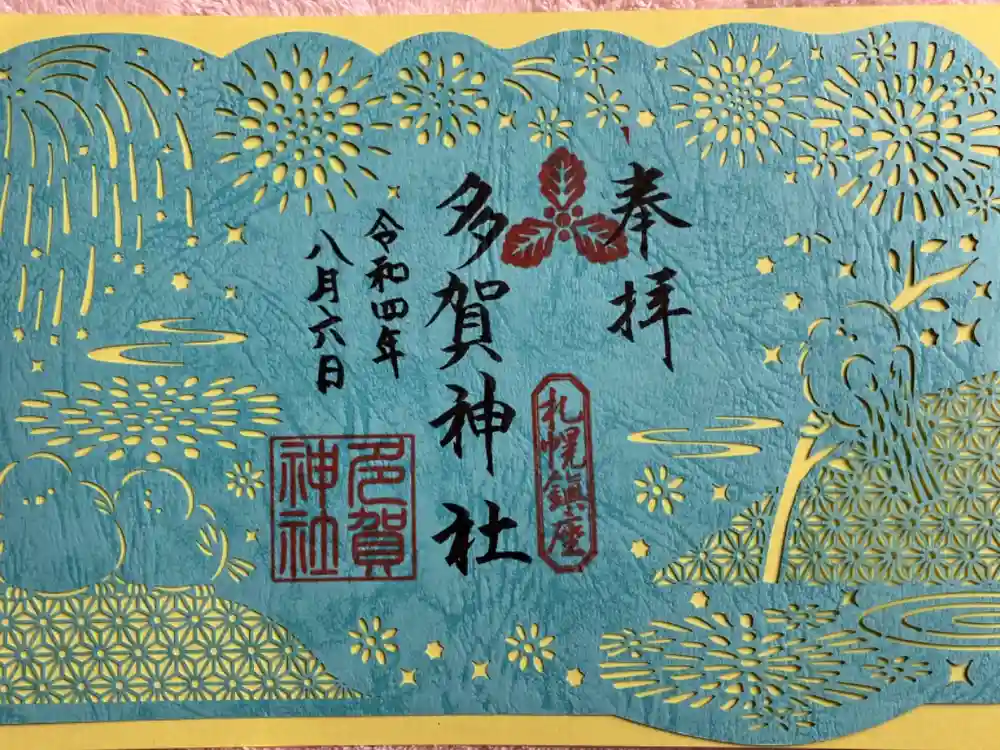 奉拝
札幌鎮座
多賀神社
令和四年
八月六日
多賀
神社